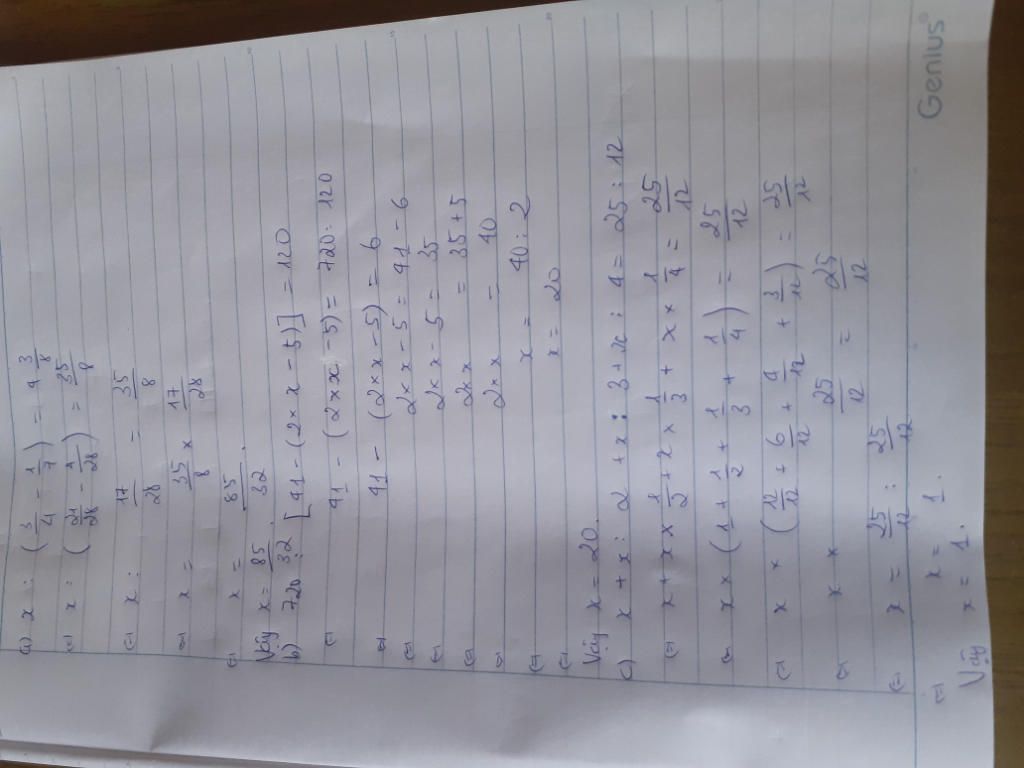 a) x : (3/4 - 1/7) = 4 3/8
<=> x : (21/28 - 4/28) = 35/8
<=> x : 17/28 = 35/8
<=> x = 35/8 × 17/28
<=> x = 85/32.
Vậy x = 85/32.
b) 720 : [41 - (2 × x - 5)] = 120
<=> 41 - (2 × x - 5) = 720 : 120
<=> 41 - (2 × x - 5) = 6
<=> 2 × x - 5 = 41 - 6
<=> 2 × x - 5 = 35
<=> 2 × x = 35 + 5
<=> 2 × x = 40
<=> x = 40 : 2
<=> x = 20
Vậy x = 20.
c) x + x : 2 + x : 3 + x : 4 = 25 : 12
<=> x + x × 1/2 + x × 1/3 + x × 1/4 = 25/12
<=> x × (1 + 1/2 + 1/3 + 1/4) = 25/12
<=> x × (12/12 + 6/12 + 4/12 + 3/12) = 25/12
<=> x × 25/12 = 25/12
<=> x = 25/12 : 25/12
<=> x = 1.
Vậy x = 1.
Genius